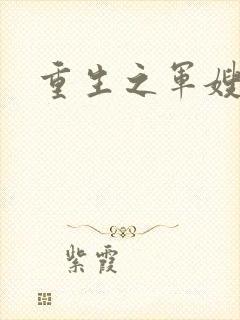 重生之军嫂
紫霞